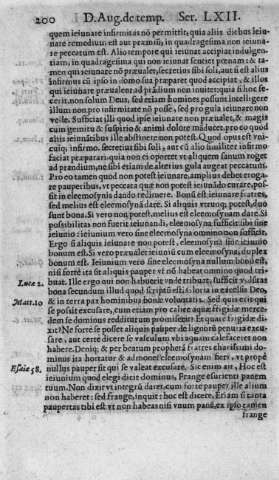 200 D. Aug. de temp. Ser. LXII.
quem ieiunare infirmitas nõ permittit, quia aliis diebus ieiu-
nare remedium est aut præmiũ, in quadragesima non ieiuna-
re peccatum est. Alio tempore qui ieiunat accipiet indulgen-
tiam, in quadragesima qui non ieiunat sentiet pœnam: & ta-
men qui ieiunare nõ præualet, secretius sibi soli, aut si est alius
infirmus cũ ipso in domo sua præparet quod accipiat, & illos
qui ieiunare præualent ad prandium non inuitet: quia si hoc fe-
cerit, non solum Deus, sed etiam homines possunt intelligere
illum non pro infirmitate nõ posse, sed pro gula ieiunare non
velle. Sufficiat illi quod ipse ieiunare non præualet, & magis
cum gemitu & suspirio & animi dolore mãducet, pro eo quod
aliis ieiunãtibus ille abstinere non potest.
infirmo. secretius sibi soli, aut cũ alio similiter infirmo
faciat præparari: quia non ei oportet vt aliquem sanum roget
ad prandium, ne sibi etiam de alterius gula augeat peccatum.
Pro eo tamen quod non potest ieiunare, amplius debet eroga-
re pauperibus, vt peccata quæ non potest ieiunãdo curare, pos-
sit eleemosynis dando redimere. Bonũ est ieiunare fratres,
sed melius est eleemosynã dare. Si aliquis vtrunq; potest, duo
sunt bona. Si vero non potest, melius est eleemosynam dare. Si
possibilitas non fuerit ieiunandi, eleemosyna sufficit sibi sine
ieiunio: ieiunium vero sine eleemosyna omnino non sufficit.
Ergo si aliquis ieiunare non potest, eleemosyna sine ieiunio
bonum est. Si vero præualet ieiunare cum eleemosyna, duplex
bonum est. Ieiunium vero sine eleemosyna nullum bonũ est,
nisi forte ita sit aliquis pauper vt nõ habeat omnino quod tri-
buat. Ille ergo qui non habuerit vnde tribuat, sufficit ei volũtas
bona secundum illud quod scriptũ est: Gloria in excelsis Deo,
Luce 2. & in terra pax hominibus bonæ voluntatis. Sed quis est qui
Matt. 10 se possit excusare, cum etiam pro calice aquæ frigidæ merce-
dem se dominus redditurum promiserit? Et quare frigidæ di-
xit? Ne forte se posset aliquis pauper de lignorũ penuria excu-
sare, aut certe dicere se vasculum vbi aquam calefaceret non
habere. Deniq; & per beatum prophetã fratres charissimi do-
minus ita hortatur & admonet eleemosynam fieri, vt prope
Esaie 58. nullus pauper sit qui se valeat excusare. Sic enim ait, Hoc est
ieiunium quod elegi dicit dominus, Frange esurienti panem
tuum. Non dixit vt integrũ daret, cum forte pauper ille alium
non haberet: sed frange, inquit: hoc est dicere, Etiam si tanta
paupertas tibi est vt non habeas nisi vnum panẽ, ex ipso tamen
frange